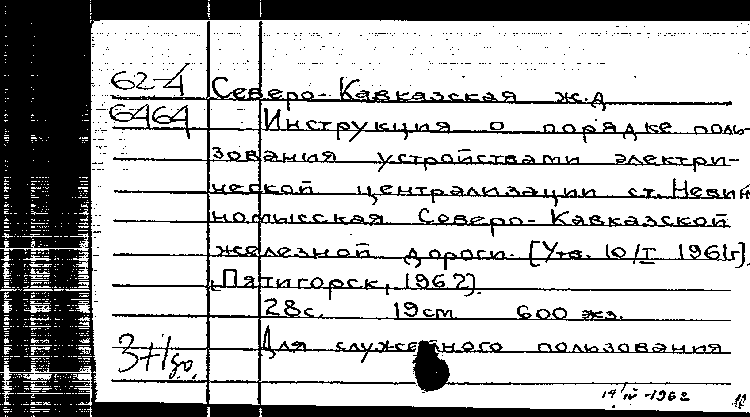 62-4
6464
Северо-Кавказская ж.д
Инструкция о порядке поль-
зования устройствами электри-
ческой централизации ст. Невин
номысская Северо-Кавказской
железной дороги. [Утв. 10/I 1961г].
[Пятигорск, 1962].
28с. 19см 600 экз.
Для служебного пользования
3+1
19/IV-1962